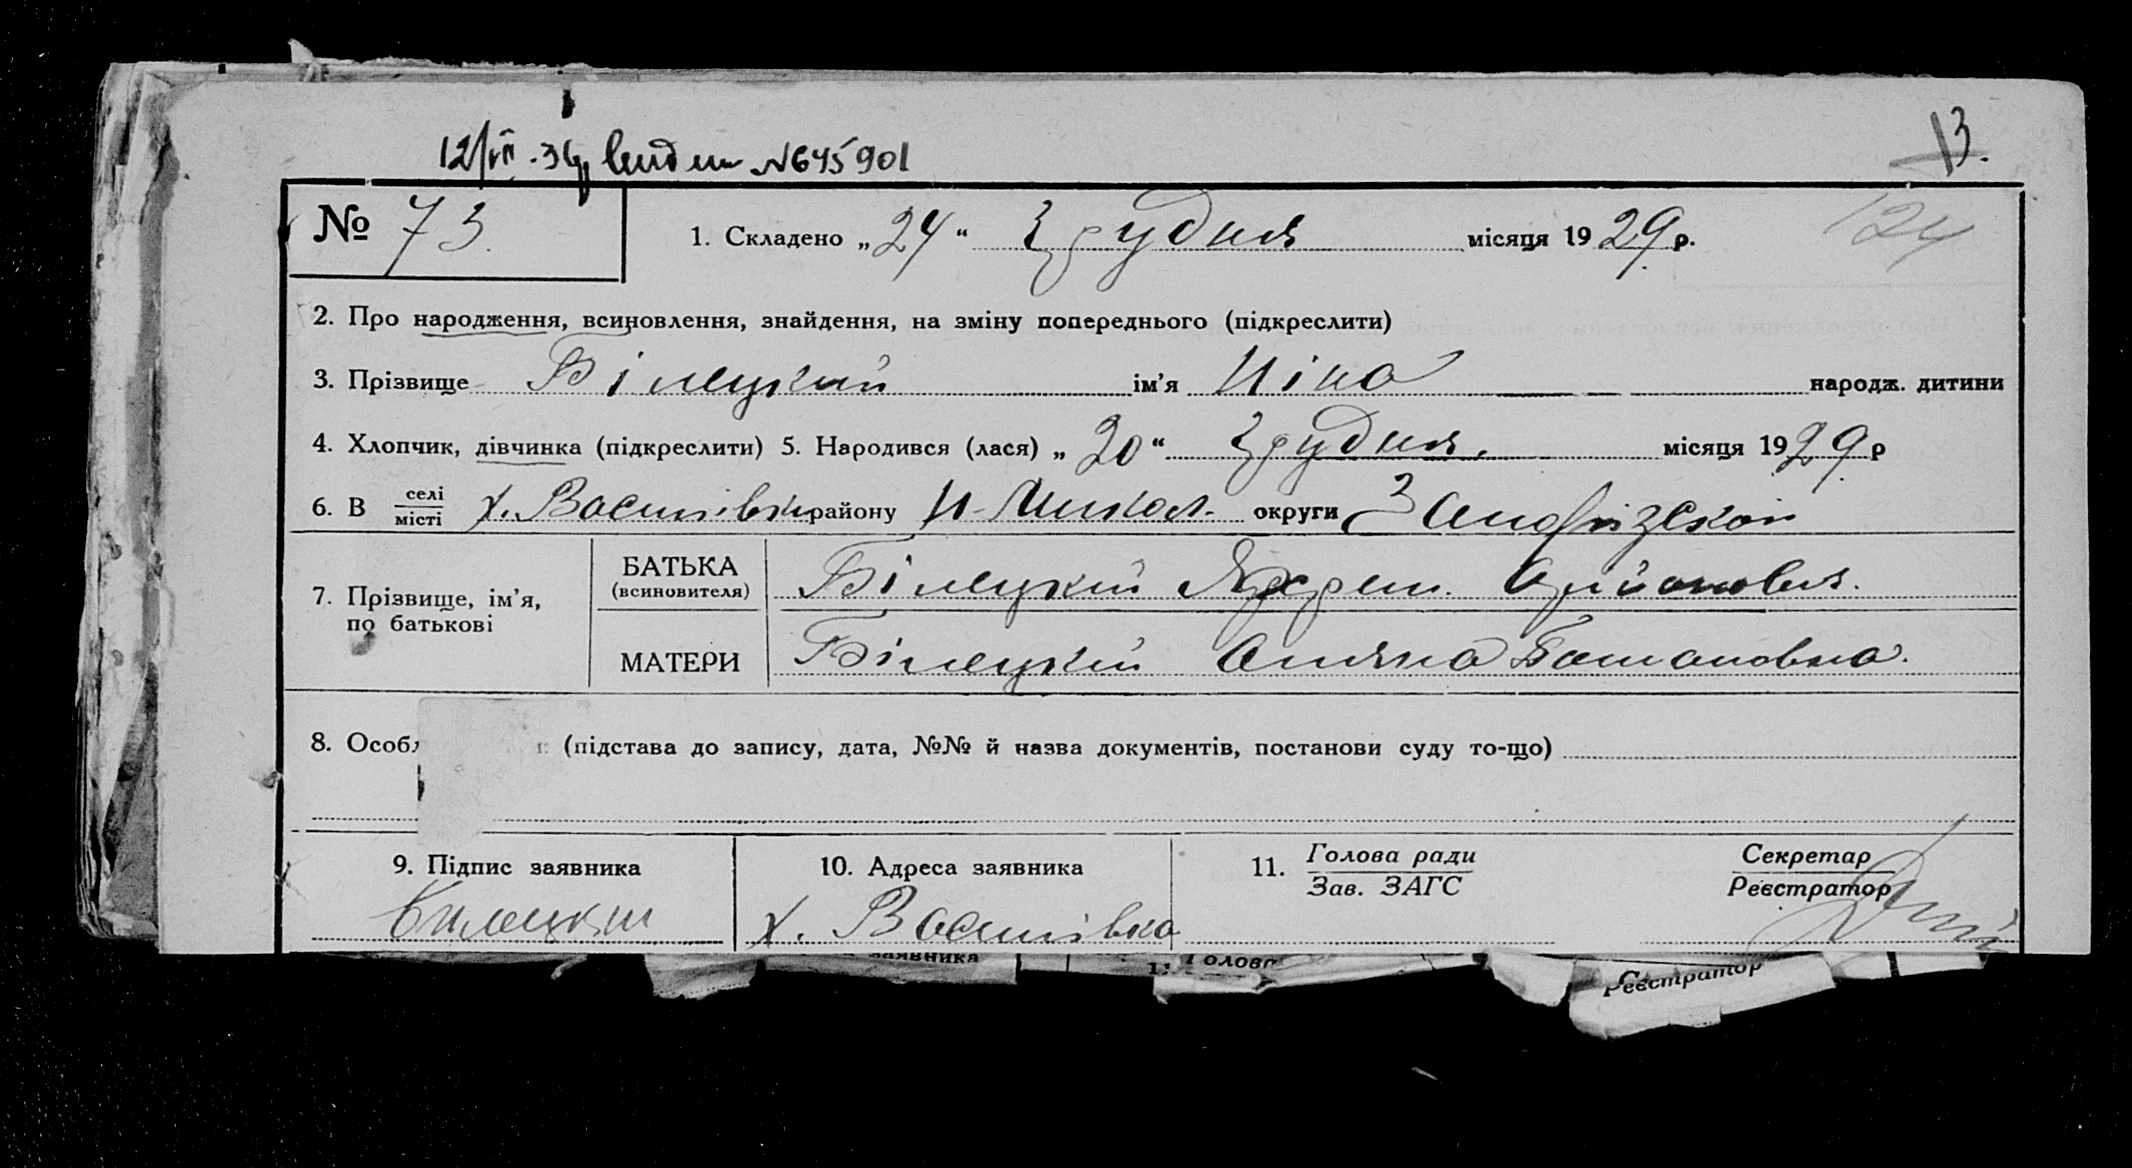 13.
№ 73. 1. Складено „24“ грудня місяця 1929 р. 124
2. Про народження, всиновлення, знайдення, на зміну попереднього (підкреслити)
3. Прізвище Білецкий ім'я Ніна народж. дитини
4. Хлопчик, дівчинка (підкреслити) 5. Народився (лася) „20“ грудня. місяця 1929 р
6. В селі/місті х. Василівки району округи
7. Прізвище, ім'я, по батькові
БАТЬКА (всиновителя) Білецкий
МАТЕРИ Білецкий
8. (підстава до запису, дата, №№ й назва документів, постанови суду то-що)
9. Підпис заявника 10. Адреса заявника 11. Голова ради/Зав. ЗАГС Секретар/Реєстратор
Билецкий х. Василівка
заявника Голова Реєстратор